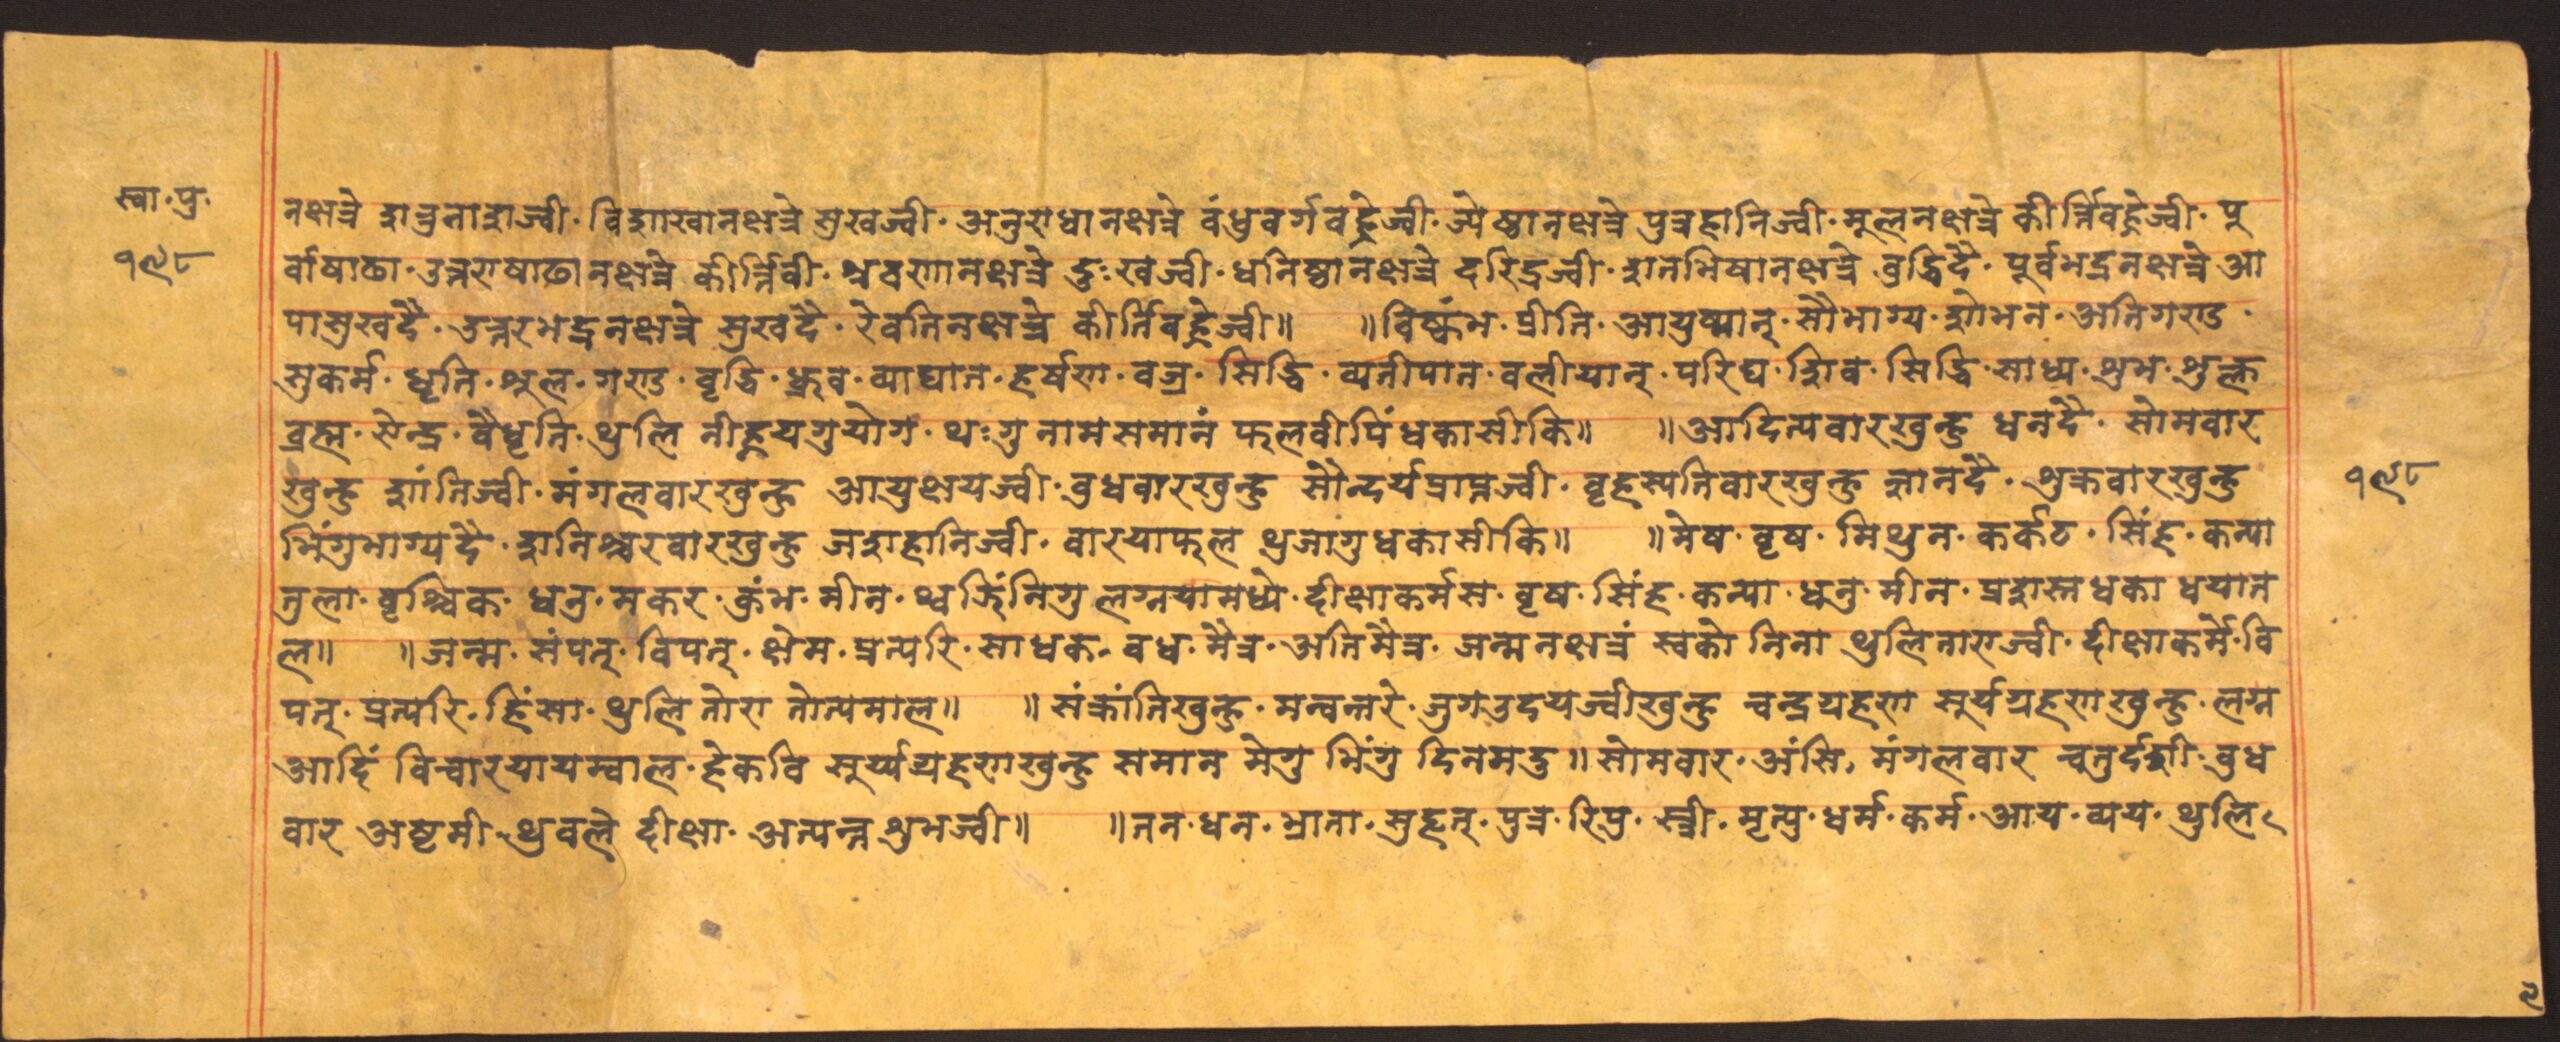 स्वा॰पु॰
१९८
नक्षत्रे शत्रुनाशज्वी॰ विशाखानक्षत्रे सुखज्वी॰ अनुराधानक्षत्रे वंधुवर्गवर्द्धेज्वी॰ ज्येष्ठानक्षत्रे पुत्रहानिज्वी॰ मूलनक्षत्रे कीर्त्तिवर्द्धेज्वी॰ पु
र्वाषाढा॰ उत्तराषाढानक्षत्रे कीर्त्तिवी॰ श्रवणानक्षत्रे दुःखज्वी॰ धनिष्ठानक्षत्रे दरिद्रज्वी॰ शतभिषानक्षत्रे वुद्धिदै॰ पूर्वभद्रनक्षत्रे आ
पासुखदै॰ उत्तरभद्रनक्षत्रे सुखदै॰ रेवतिनक्षत्रे कीर्तिवर्द्धेज्वी॥ ॥विष्कंभ॰ प्रीति॰ आयुष्मान्॰ सौभाग्य॰ शोभन॰ अतिगण्ड॰
सुकर्म॰ धृति॰ शूल॰ गण्ड॰ वृद्धि॰ ध्रुव॰ व्याघात॰ हर्षण॰ वज्र॰ सिद्धि॰ व्यतीपात॰ वलीयान्॰ परिघ॰ शिव॰ सिद्धि॰ साध्य॰ शुभ॰ शुक्ल
व्रह्म॰ सेन्द्र॰ वैधृति॰ थुलि नीह्नुयगुयोग॰ थःगु नामसमानं फलवीपिं धकासीकि॥ ॥आदित्यवारखुन्हु धनदै॰ सोमवार
खुन्हु शांतिज्वी॰ मंगलवारखुन्हु आयुक्षयज्वी॰ वुधवारखुन्हु सौन्दर्यप्राप्तज्वी॰ वृहस्पतिवारखुन्हु ज्ञानदै॰ शुक्रवारखुन्हु
भिंगुभाग्यदै॰ शनिश्चरवारखुन्हु जशहानिज्वी॰ वारयाफल थुजागुधकासीकि॥ ॥मेष॰ वृष॰ मिथुन॰ कर्कट॰ सिंह॰ कन्या
तुला॰ वृश्चिक॰ धनु॰ मकर॰ कुंभ॰ मीन॰ थ्वझिंनिगु लग्नयामध्ये॰ दीक्षाकर्मस॰ वृष॰ सिंह॰ कन्या॰ धनु॰ मीन॰ प्रशस्त धका धयात
ल॥ ॥जन्म॰ संपत्॰ विपत्॰ क्षेम॰ प्रत्यरि॰ साधक॰ वध॰ मैत्र॰ अतिमैत्र॰ जन्मनक्षत्रं स्वको निता थुलिताराज्वी॰ दीक्षाकर्मे॰ वि
पत्॰ प्रत्यरि॰ हिंसा॰ थुलि तोरा तोत्यमाल॥ ॥संक्रांतिखुन्हु॰ मन्वन्तरे॰ जुगउदयज्वीखुन्हु चन्द्रग्रहण सूर्यग्रहणखुन्हु॰ लग्न
आदिं विचारयायम्वाल॰ हेकवि सूर्य्यग्रहणखुन्हु समान मेगु भिंगु दिनमदु॥ सोमवार॰ अंसि, मंगलवार चतुर्दशी॰ वुध
वार अष्टमी थुवले दीक्षा॰ अत्यन्त शुभज्वी॥ ॥तन॰ धन॰ भ्राता॰ सुहृत्॰ पुत्र॰ रिपु॰ स्त्री॰ मृत्यु॰ धर्म॰ कर्म॰ आय॰ व्यय॰ थुलि
१९८